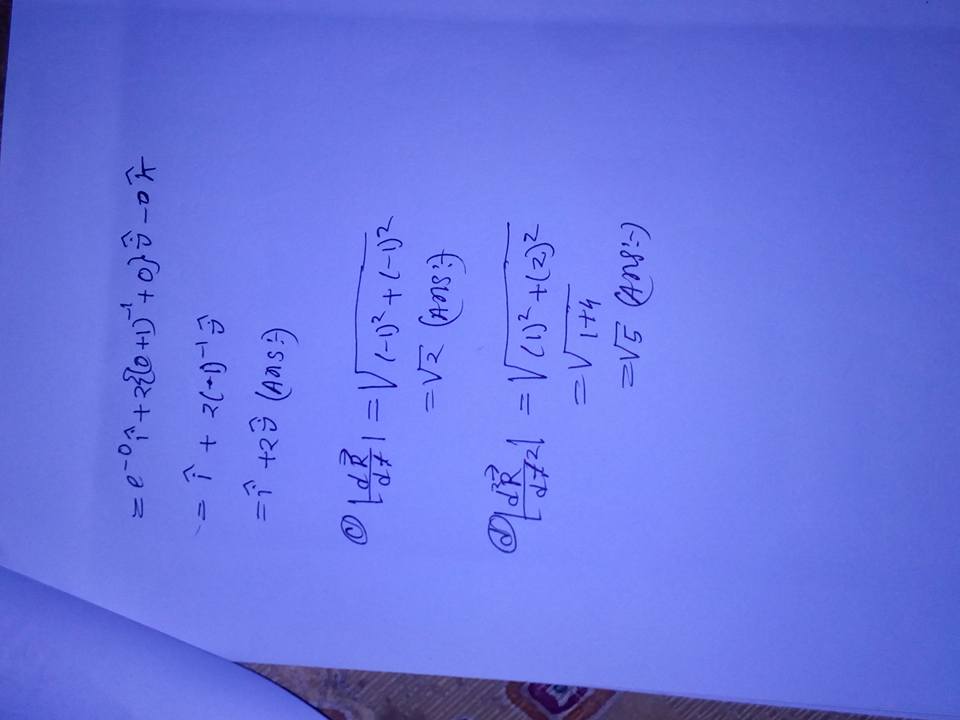 = e⁻⁰ î + 2{(0+1)⁻¹ + 0} ĵ - 0 k̂
= î + 2(+1)⁻¹ ĵ
= î + 2ĵ (Ans:-)
ⓒ |dR⃗/dt| = √((-1)² + (-1)²)
= √2 (Ans:-)
ⓓ |d²R⃗/dt²| = √((1)² + (2)²)
= √(1+4)
= √5 (Ans:-)